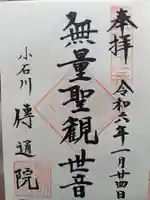 奉拝
令和六年一月廿四日
無量聖観世音
小石川
傳通院